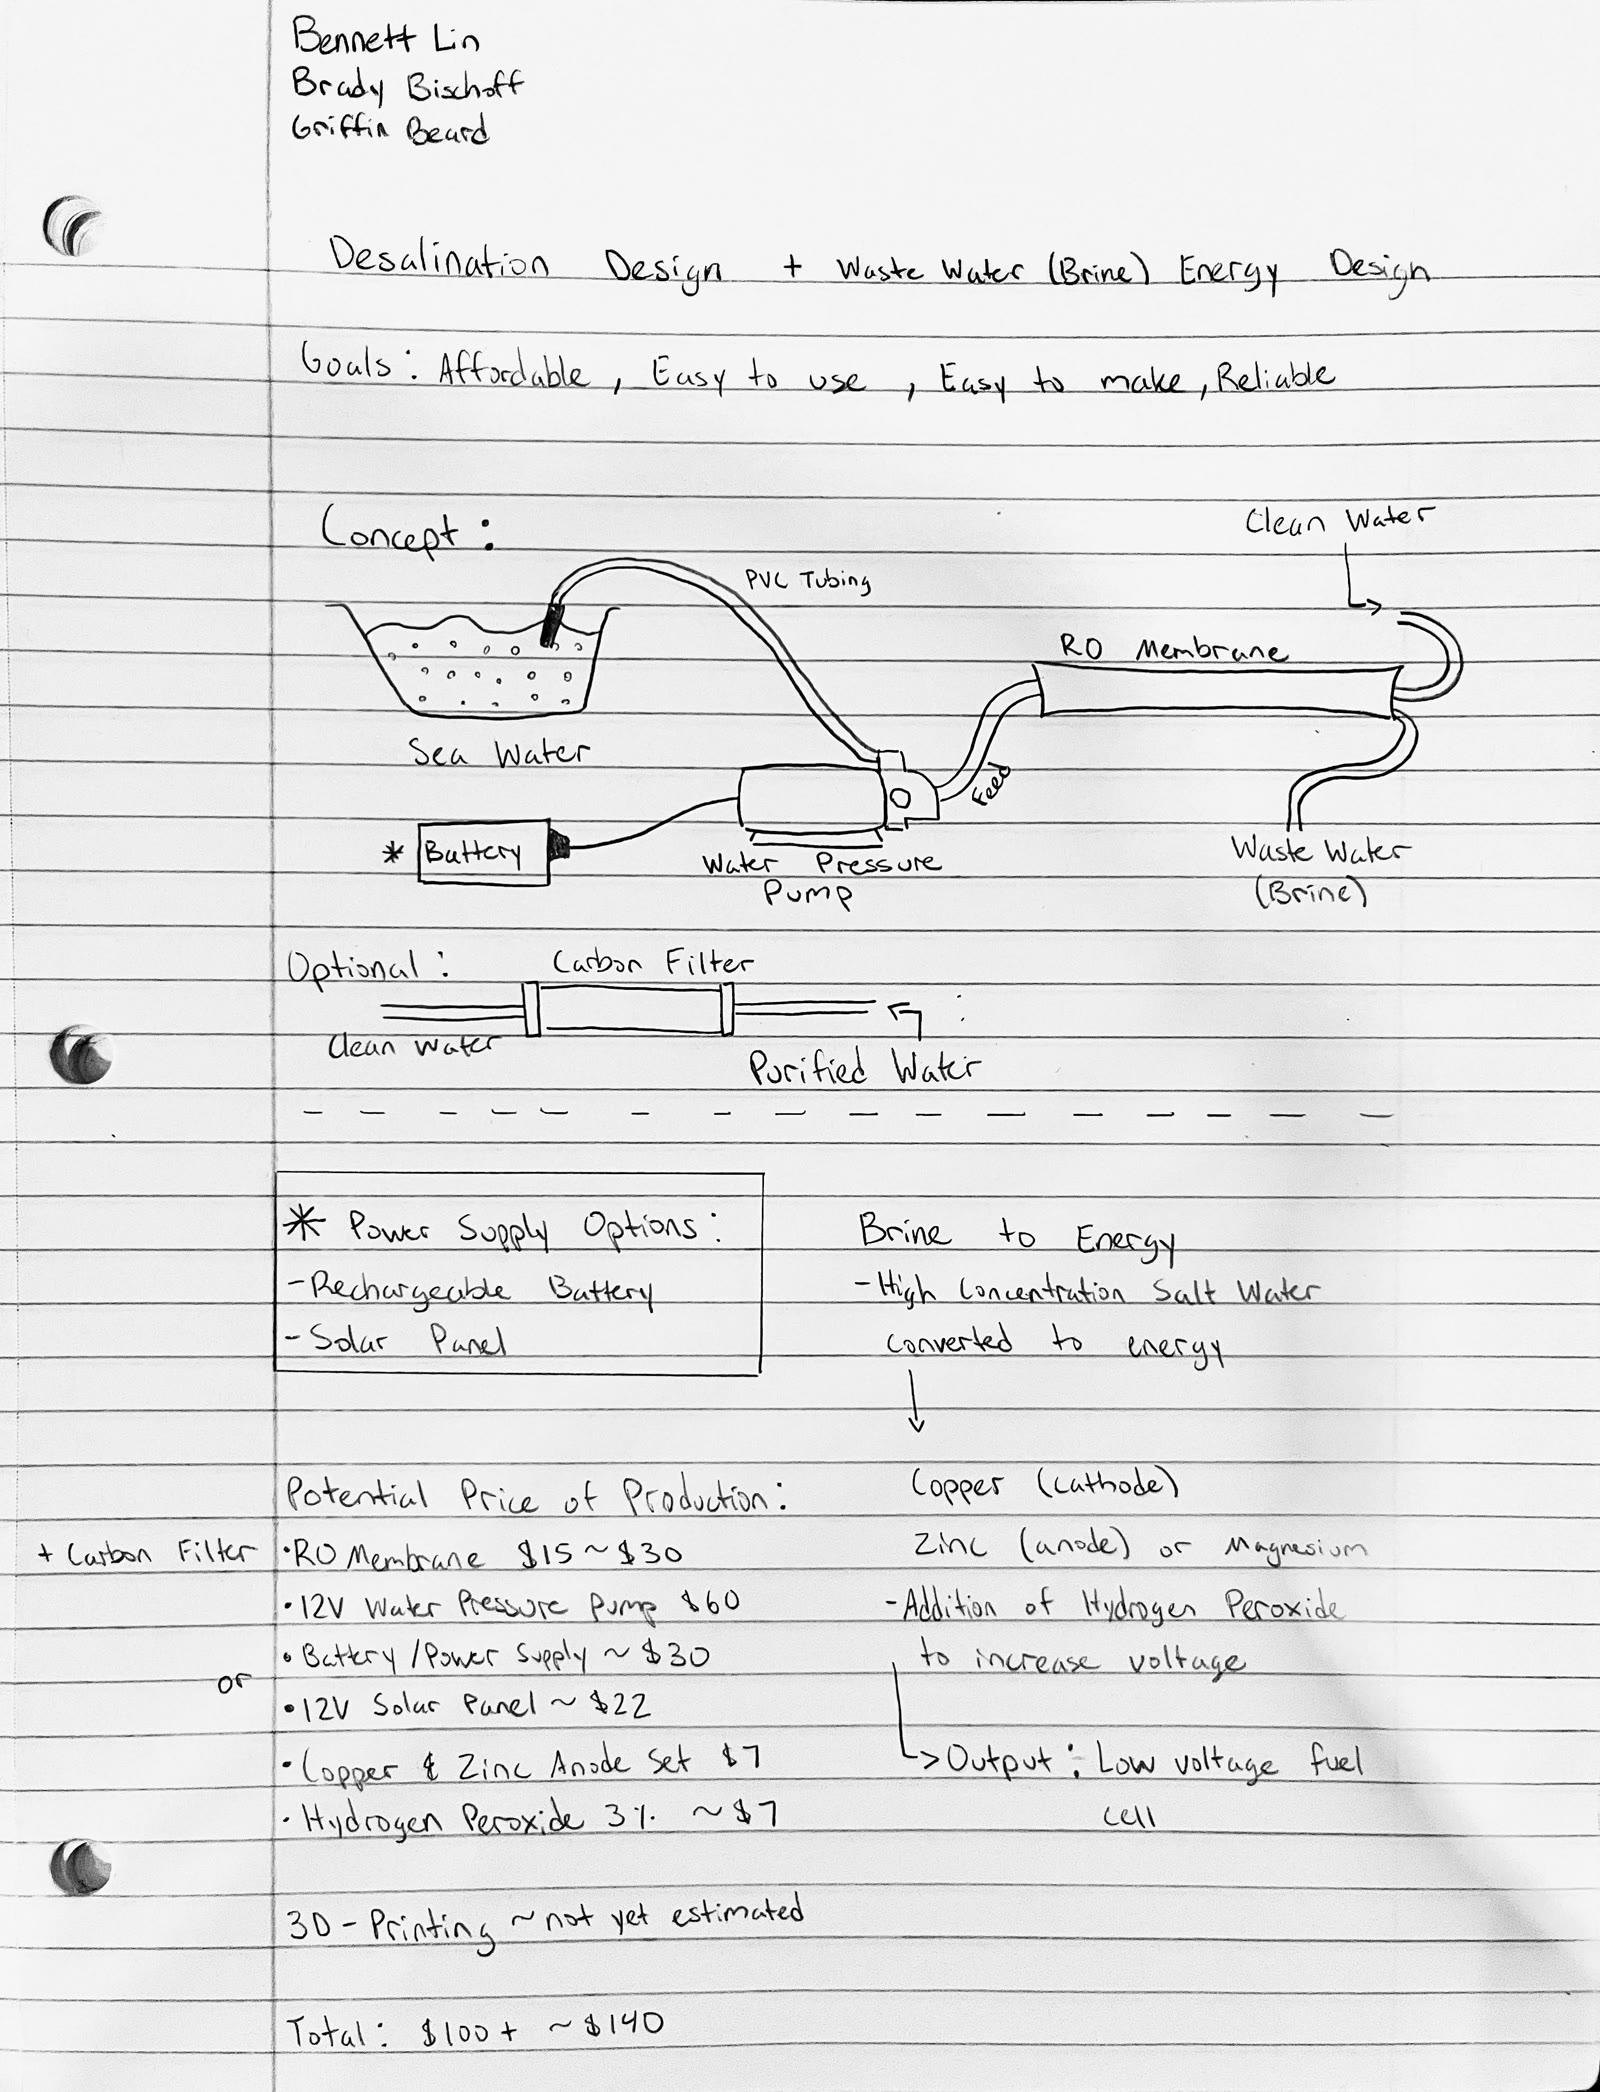 Bennett Lin
Brady Bischoff
Griffin Beard
Desalination Design + Waste Water (Brine) Energy Design
Goals: Affordable, Easy to use, Easy to make, Reliable
Concept:
Clean Water
PVC Tubing
RO Membrane
Sea Water
Feed
* Battery
Water Pressure
Pump
Waste Water
(Brine)
Optional:
Carbon Filter
Clean Water
Purified Water
* Power Supply Options:
-Rechargeable Battery
-Solar Panel
Brine to Energy
-High Concentration Salt Water
converted to energy
Copper (cathode)
Zinc (anode) or Magnesium
-Addition of Hydrogen Peroxide
to increase voltage
Output: Low voltage fuel
cell
Potential Price of Production:
+ Carbon Filter •RO Membrane $15 ~ $30
•12V Water Pressure Pump $60
•Battery/Power Supply ~ $30
or
•12V Solar Panel ~ $22
•Copper & Zinc Anode Set $7
•Hydrogen Peroxide 3% ~$7
3D-Printing ~not yet estimated
Total: $100+ ~$140